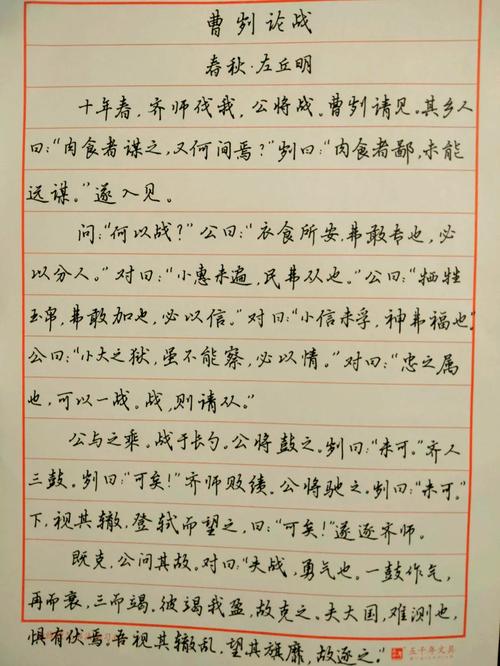 曹刿论战
春秋·左丘明
十年春，齐师伐我，公将战。曹刿请见。其乡人
曰:“肉食者谋之，又何间焉?”刿曰:“肉食者鄙，未能
远谋。”遂入见。
问:“何以战?”公曰:“衣食所安，弗敢专也，必
以分人。”对曰:“小惠未遍，民弗从也。”公曰:“牺牲
玉帛，弗敢加也，必以信。”对曰:“小信未孚，神弗福也”
公曰:“小大之狱，虽不能察，必以情。”对曰:“忠之属
也，可以一战。战，则请从。”
公与之乘。战于长勺。公将鼓之。刿曰:“未可。”齐人
三鼓。刿曰:“可矣!”齐师败绩。公将驰之。刿曰:“未可。”
下，视其辙，登轼而望之，曰:“可矣!”遂逐齐师。
既克，公问其故。对曰:“夫战，勇气也。一鼓作气，
再而衰，三而竭，彼竭我盈，故克之。夫大国，难测也，
惧有伏焉。吾视其辙乱，望其旗靡，故逐之。”
五千年文具